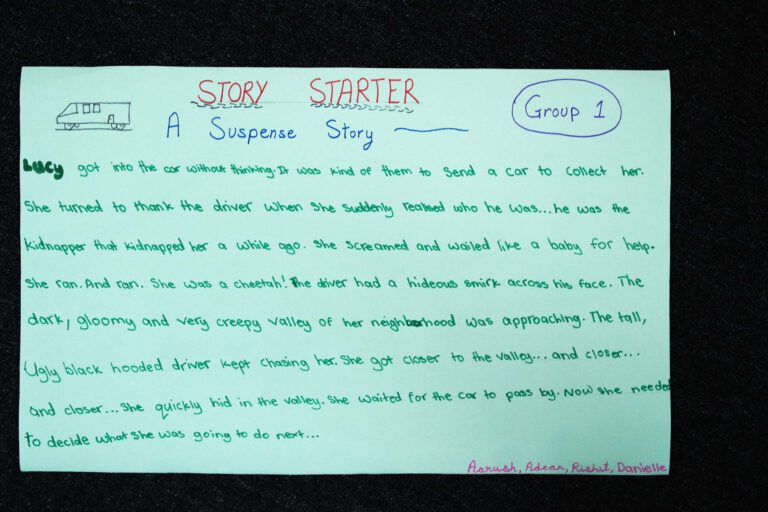 STORY STARTER
Group 1
A Suspense Story
Lucy got into the car without thinking. It was kind of them to send a car to collect her.
She turned to thank the driver when she suddenly realised who he was...he was the
kidnapper that kidnapped her a while ago. She screamed and wailed like a baby for help.
She ran. And ran. She was a cheetah! The driver had a hideous smirk across his face. The
dark, gloomy and very creepy valley of her neighborhood was approaching. The tall,
Ugly black hooded driver kept chasing her. She got closer to the valley... and closer...
and closer... She quickly hid in the valley. She waited for the car to pass by. Now she needed
to decide what she was going to do next...
Aarush, Adean, Rishit, Danielle